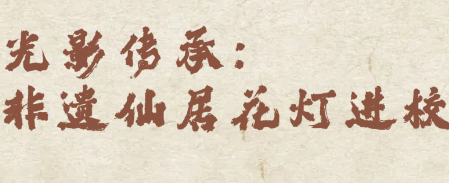 光影传承：
非遗仙居花灯进校